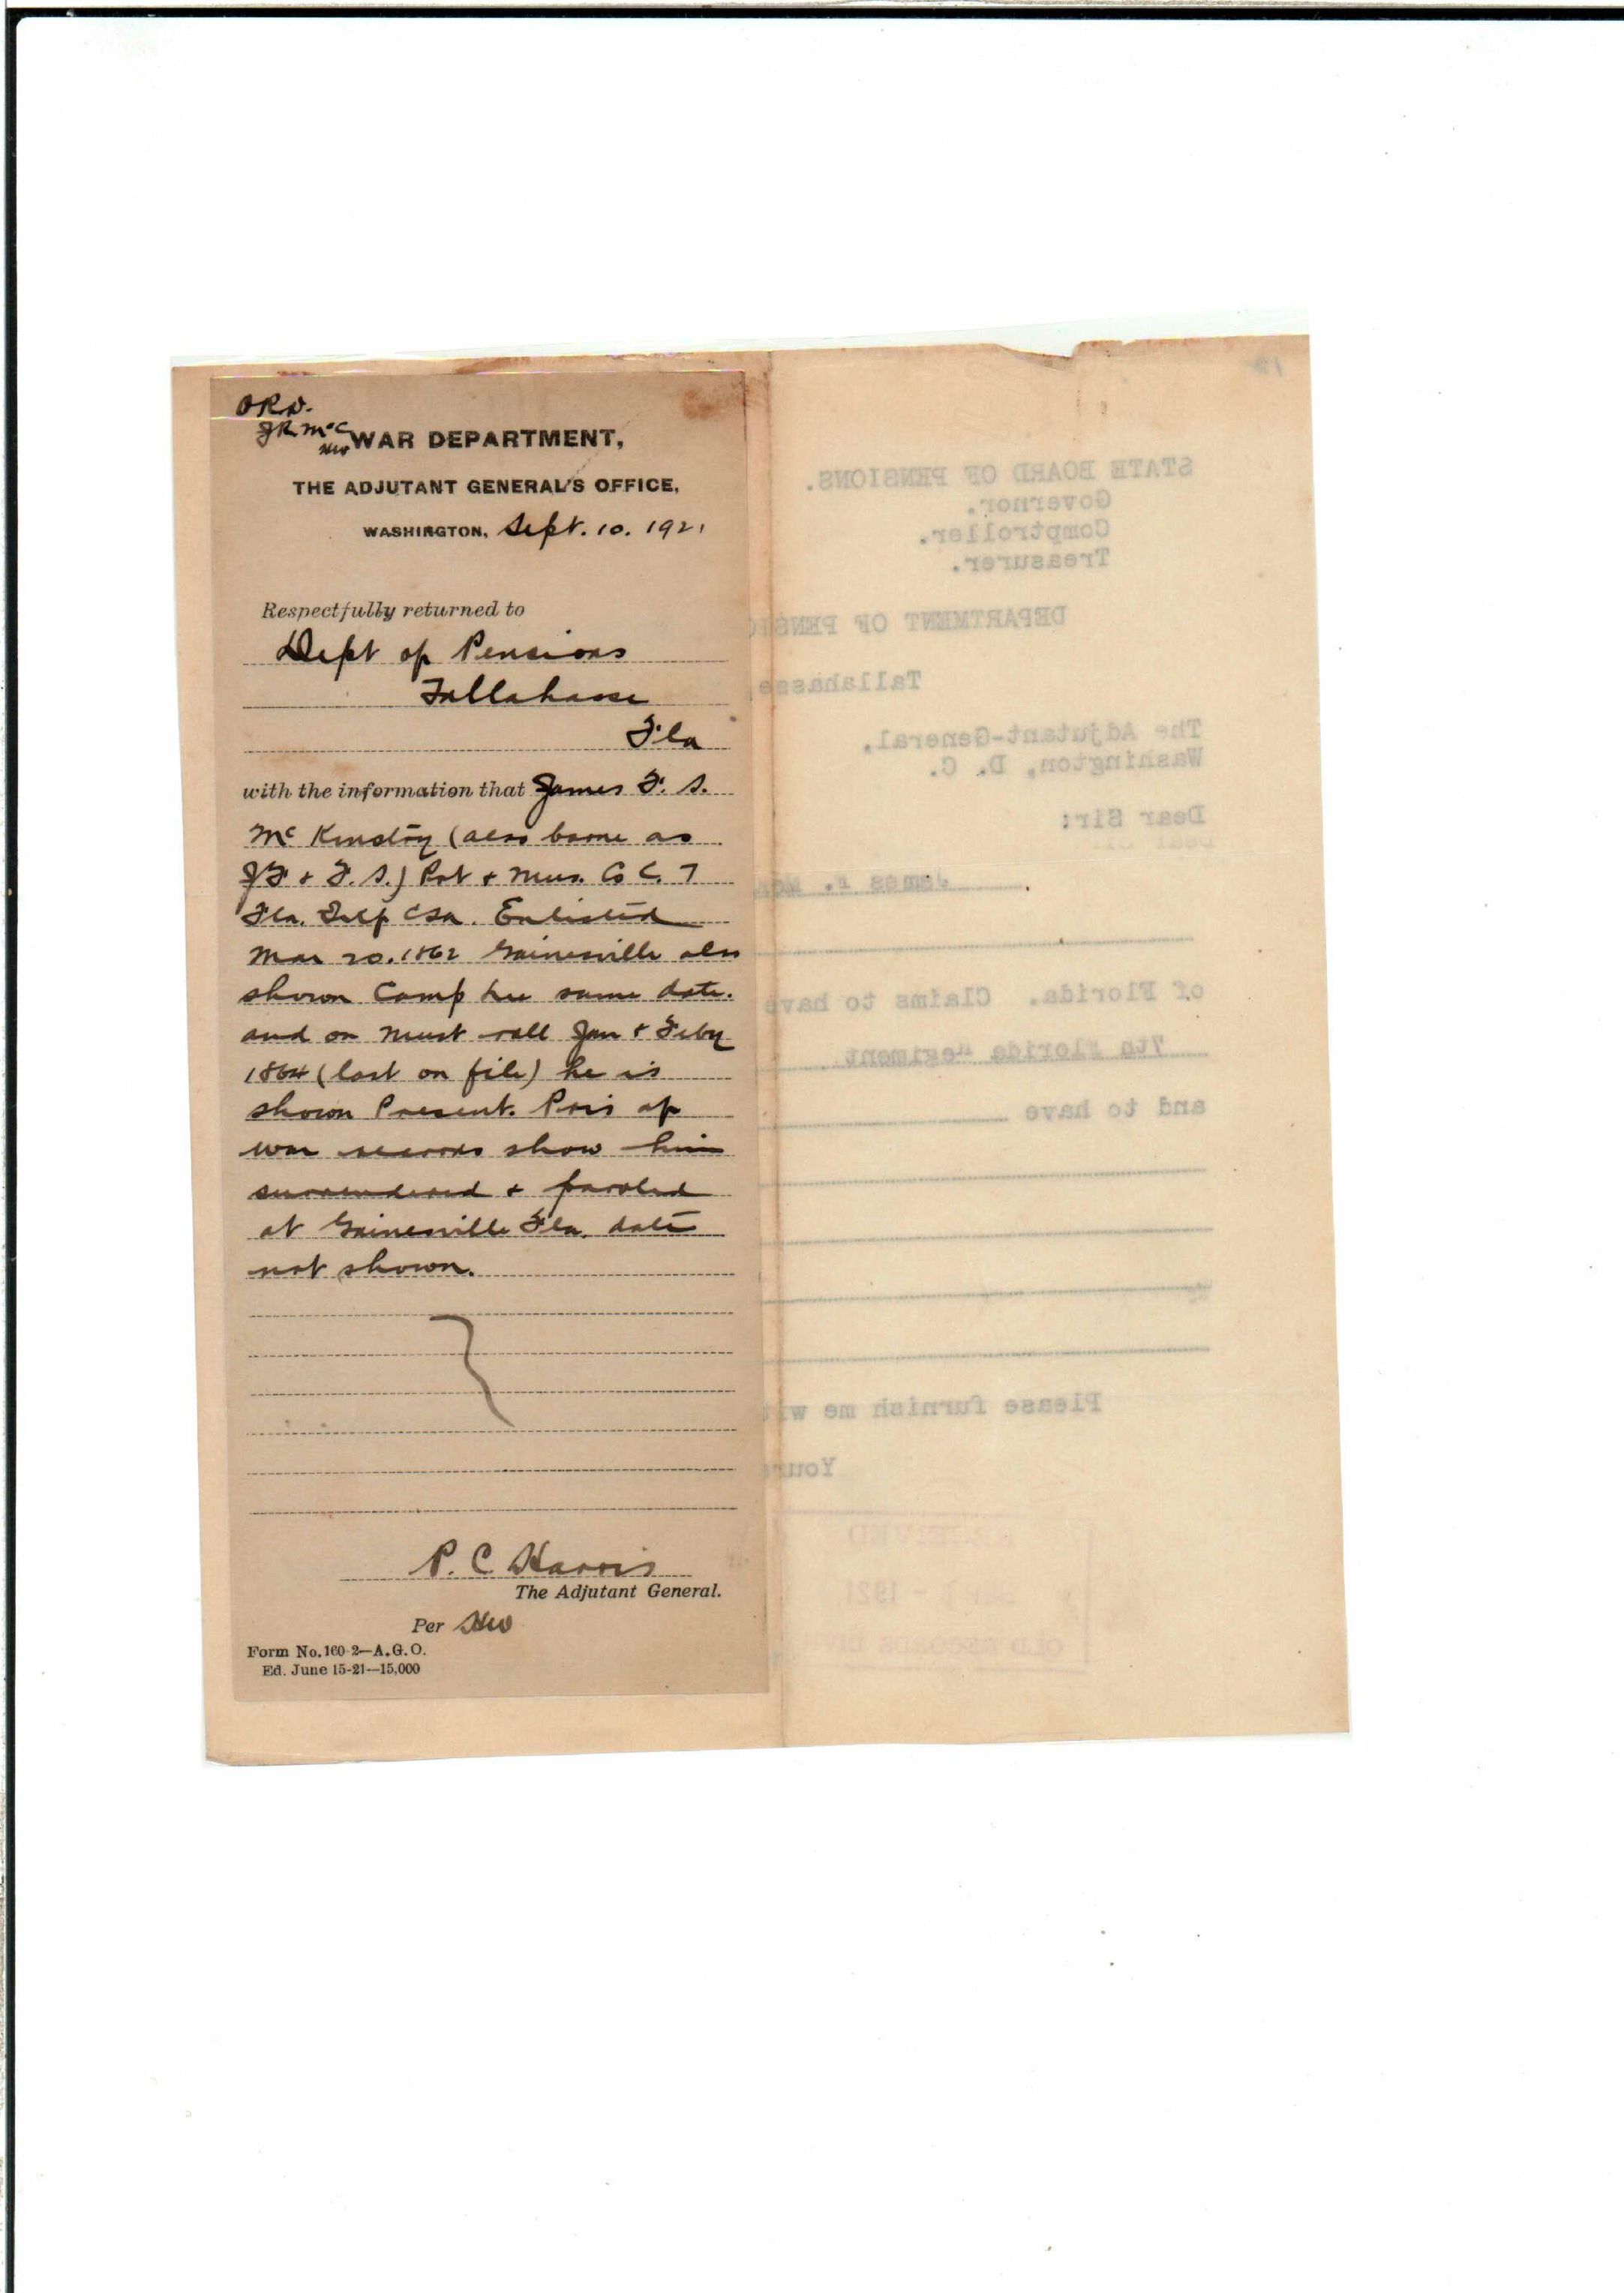 O.R.D.
J.R. McC
HW
WAR DEPARTMENT,
THE ADJUTANT GENERAL'S OFFICE,
WASHINGTON, Sept. 10. 1921
Respectfully returned to
Dept of Pensions
Tallahassee
Fla
with the information that James F. S.
McKinstry (also borne as
J F & F. S.) Pvt & Mus. Co C. 7
Fla. Inf CSA. Enlisted
Mar 20. 1862 Gainesville also
shown Camp Lee same date.
and on must roll Jan & Feby
1864 (last on file) he is
shown Present. Pris of
war records show him
surrendered & paroled
at Gainesville Fla. date
not shown.
P. C. Harris
The Adjutant General.
Per HW
Form No. 160-2—A.G.O.
Ed. June 15-21—15,000
STATE BOARD OF PENSIONS.
Governor.
Comptroller.
Treasurer.
DEPARTMENT OF PENSIO
Tallahassee
The Adjutant-General,
Washington, D. C.
Dear Sir:
James F. Mc
of Florida. Claims to have
7th Florida Regiment
and to have
Please furnish me wi
Your
RECEIVED
1921
OLD RECORDS DI